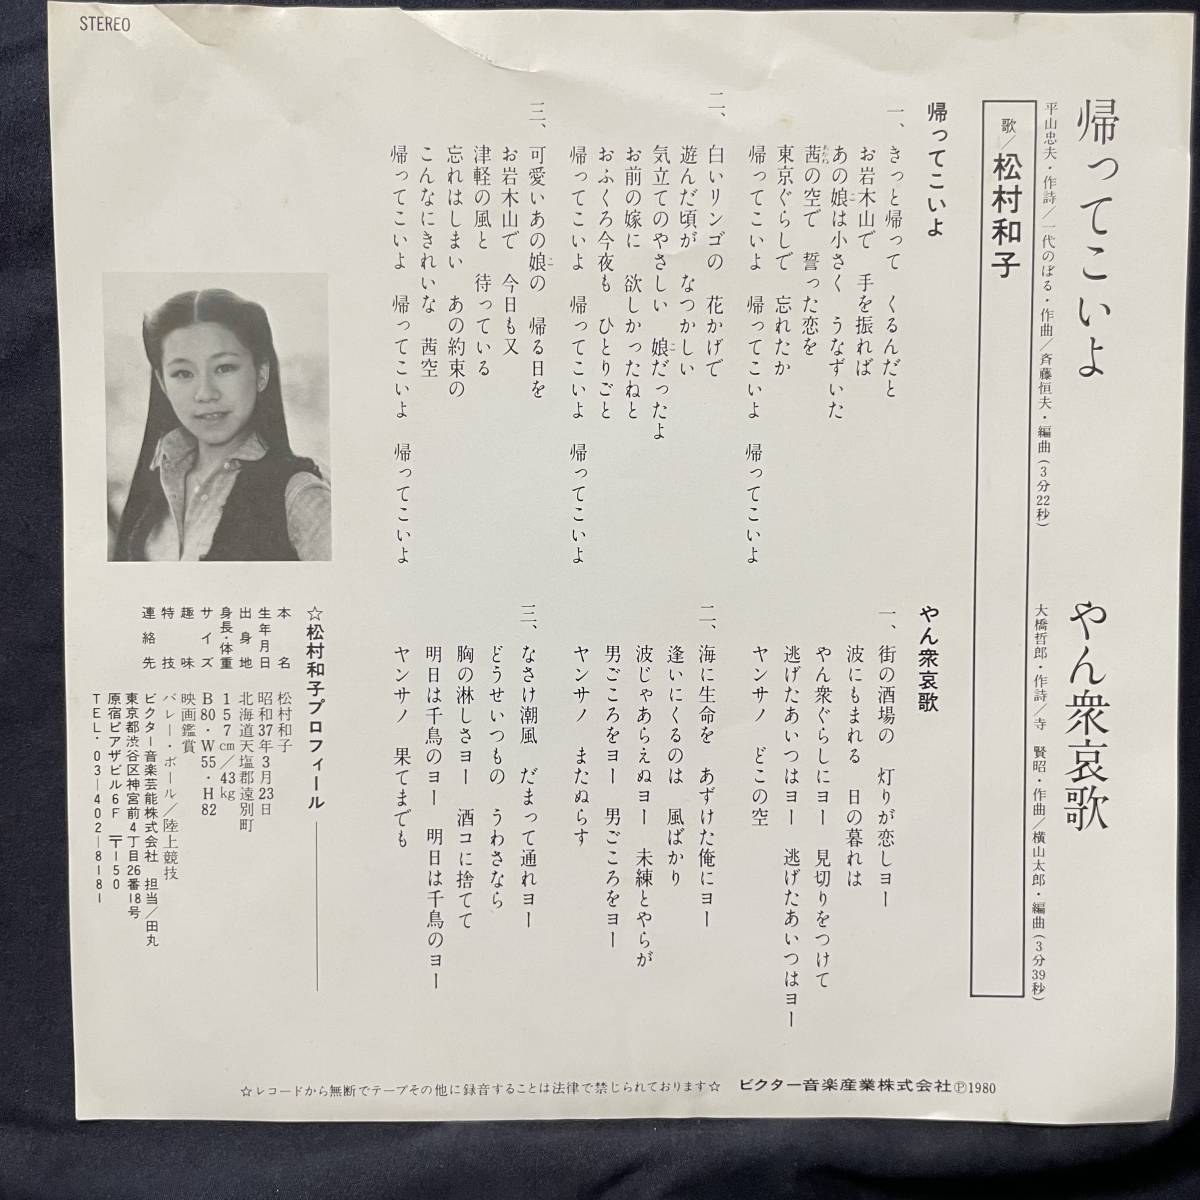 STEREO
帰ってこいよ
平山忠夫・作詩/一代のぼる・作曲/斉藤恒夫・編曲(3分22秒)
やん衆哀歌
大橋哲郎・作詩/寺 賢昭・作曲/横山太郎・編曲(3分39秒)
歌/松村和子
帰ってこいよ
一、きっと帰って くるんだと
お岩木山で 手を振れば
あの娘は小さく うなずいた
茜の空で 誓った恋を
東京ぐらしで 忘れたか
帰ってこいよ 帰ってこいよ 帰ってこいよ
二、白いリンゴの 花かげで
遊んだ頃が なつかしい
気立てのやさしい 娘だったよ
お前の嫁に 欲しかったねと
おふくろ今夜も ひとりごと
帰ってこいよ 帰ってこいよ 帰ってこいよ
三、可愛いあの娘の 帰る日を
お岩木山で 今日も又
津軽の風と 待っている
忘れはしまい あの約束の
こんなにきれいな 茜空
帰ってこいよ 帰ってこいよ 帰ってこいよ
やん衆哀歌
一、街の酒場の 灯りが恋しヨー
波にもまれる 日の暮れは
やん衆ぐらしにヨー 見切りをつけて
逃げたあいつはヨー 逃げたあいつはヨー
ヤンサノ どこの空
二、海に生命を あずけた俺にヨー
逢いにくるのは 風ばかり
波じゃあらえぬヨー 未練とやらが
男ごころをヨー 男ごころをヨー
ヤンサノ またぬらす
三、なさけ潮風 だまって通れヨー
どうせいつもの うわさなら
胸の淋しさヨー 酒コに捨てて
明日は千鳥のヨー 明日は千鳥のヨー
ヤンサノ 果てまでも
☆松村和子プロフィール
本名 松村和子
生年月日 昭和37年3月23日
出身地 北海道天塩郡遠別町
身長・体重 157cm/43kg
サイズ B80・W55・H82
趣味 映画鑑賞
特技 バレー・ボール/陸上競技
連絡先 ビクター音楽芸能株式会社 担当/田丸
東京都渋谷区神宮前4丁目26番18号
原宿ピアザビル6F 〒150
TEL・03-402-8181
☆レコードから無断でテープその他に録音することは法律で禁じられております☆ ビクター音楽産業株式会社Ⓟ1980